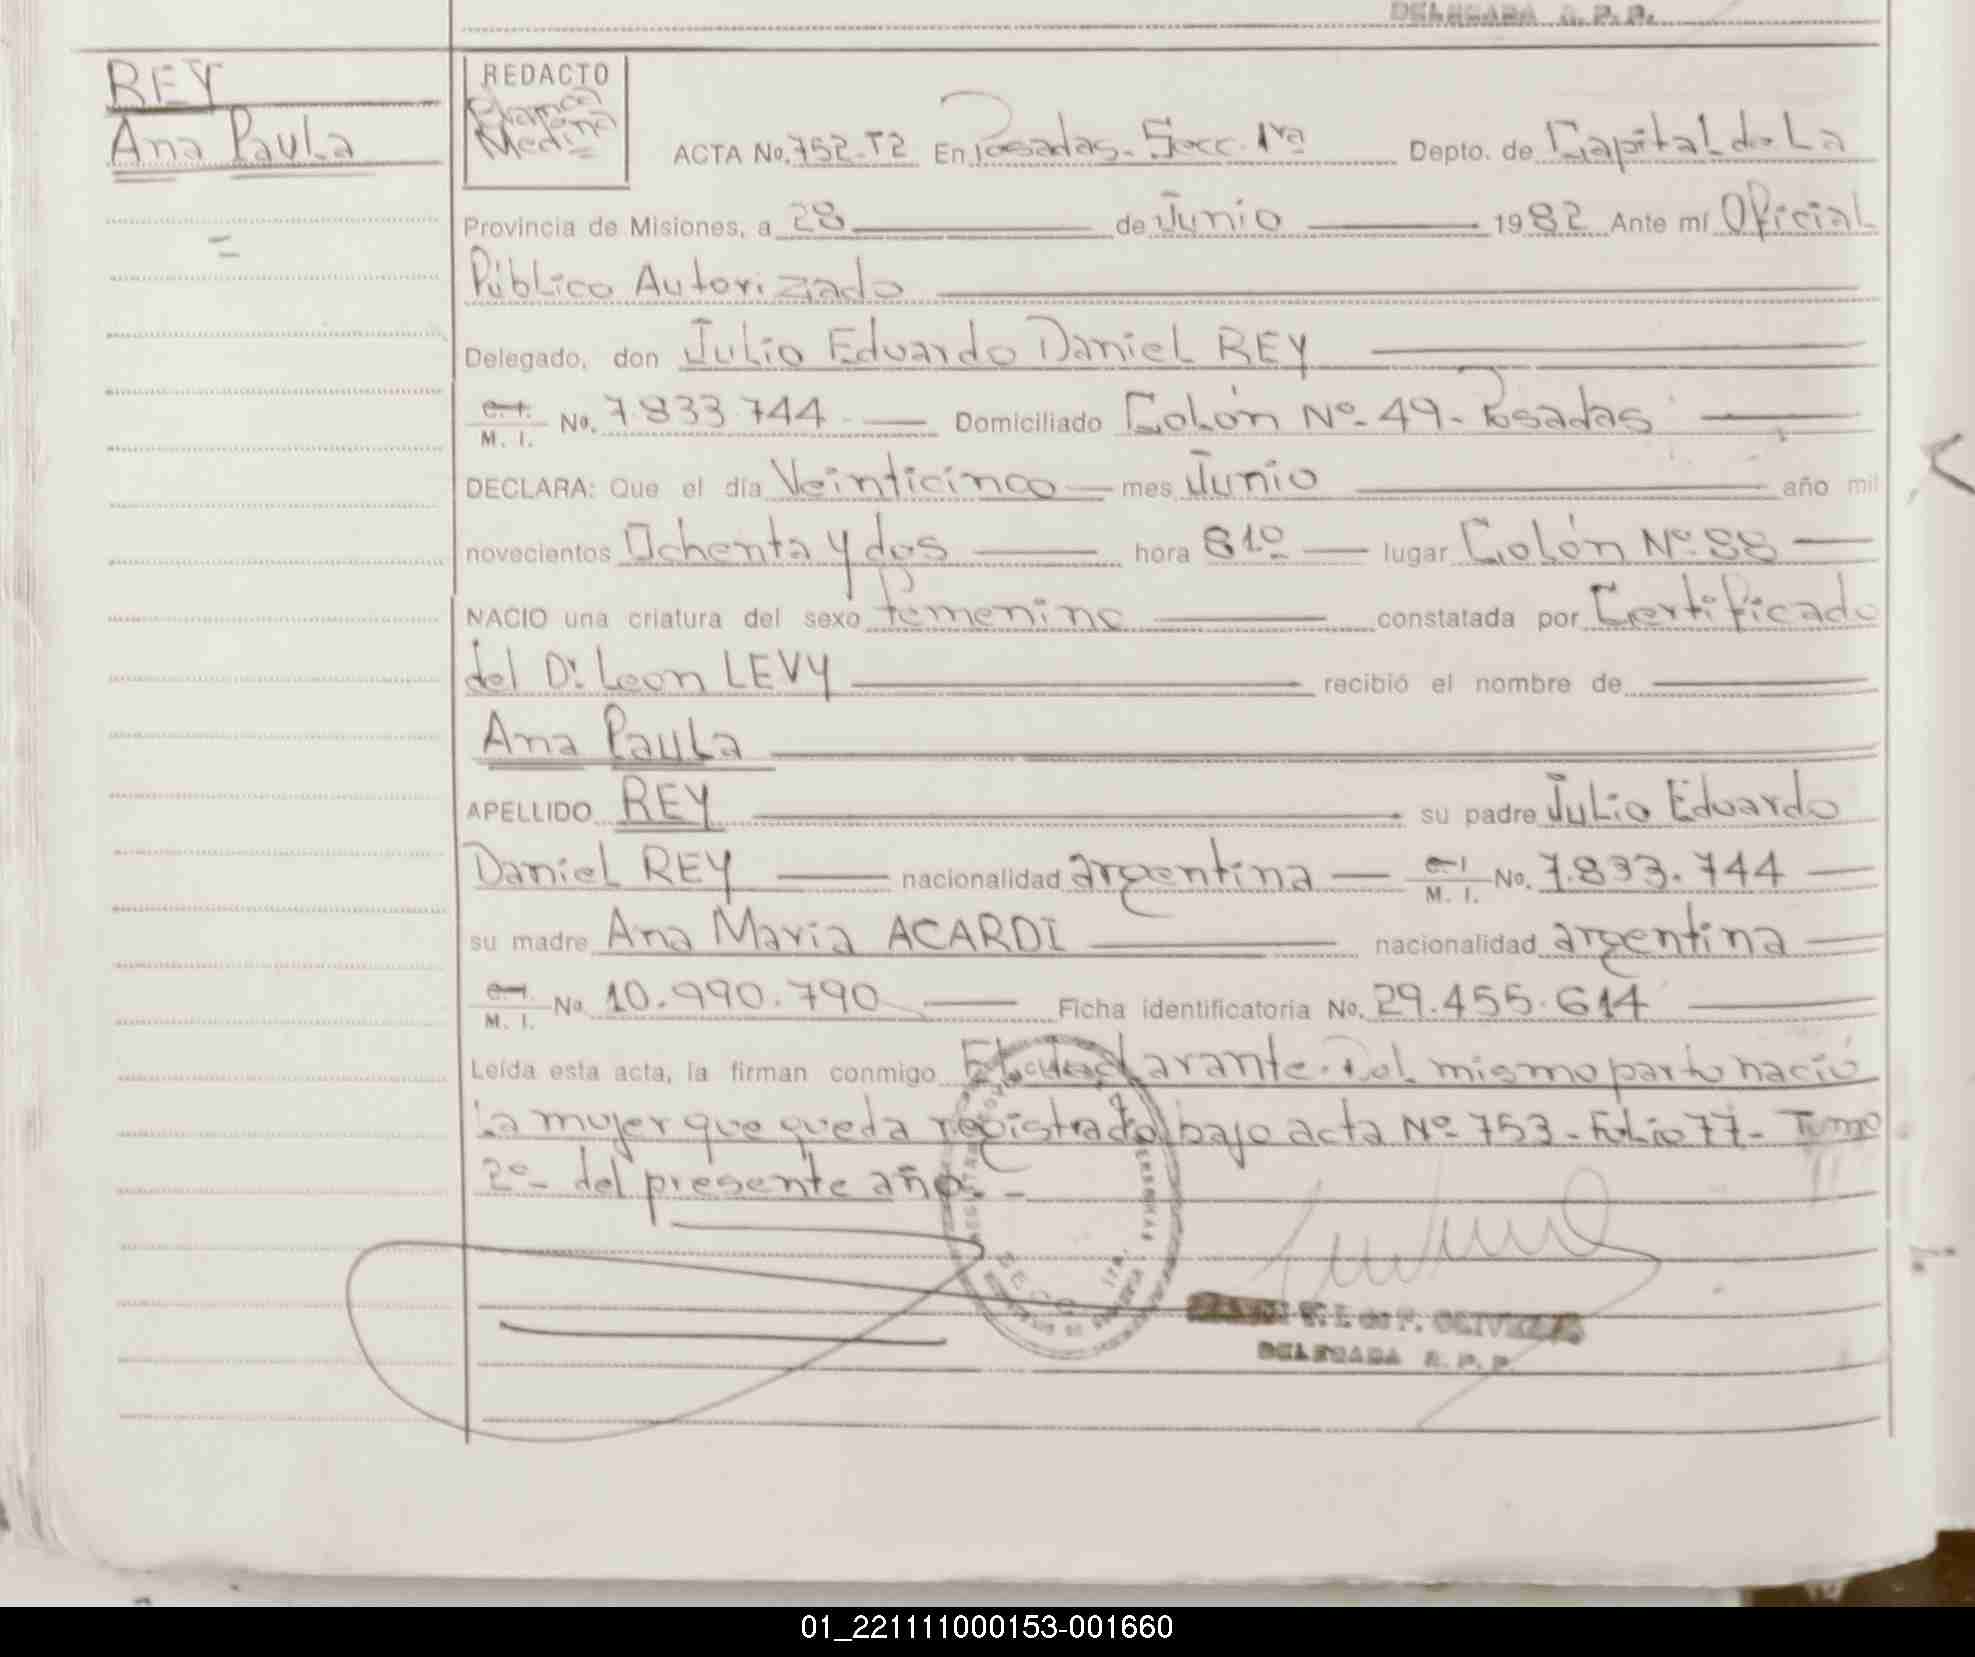 DELEGADA R. P. P.
REY
Ana Paula
=
REDACTO
Medina
ACTA No. 752-T2 En Posadas-Secc. 1ra Depto. de Capital de La
Provincia de Misiones, a 28 de Junio 1982 Ante mí Oficial
Público Autorizado
Delegado, don Julio Eduardo Daniel REY
C.I. M. I. No. 7.833.744 Domiciliado Colón Nº-49-Posadas
DECLARA: Que el día Veinticinco mes Junio año mil
novecientos Ochenta y dos hora 810 lugar Colón Nº 88
NACIO una criatura del sexo femenino constatada por Certificado
del Dr. Leon LEVY recibió el nombre de
Ana Paula
APELLIDO REY su padre Julio Eduardo
Daniel REY nacionalidad argentina C.I. M. I. No. 7.833.744
su madre Ana Maria ACARDI nacionalidad argentina
C.I. M. I. No. 10.990.790 Ficha identificatoria No. 29.455.614
Leída esta acta, la firman conmigo El declarante. Del mismo parto nació
la mujer que queda registrada bajo acta Nº 753-Folio 77-Tomo
2º- del presente año.-
DELEGADA R. P. P.
01_221111000153-001660